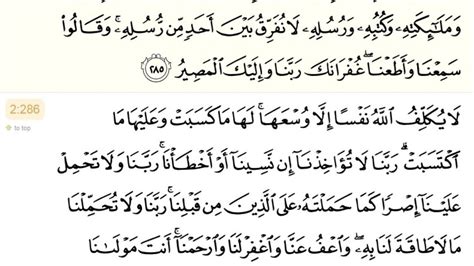 وَمَلَٰٓئِكَتِهِۦ وَكُتُبِهِۦ وَرُسُلِهِۦ لَا نُفَرِّقُ بَيْنَ أَحَدٍ مِّن رُّسُلِهِۦ ۚ وَقَالُوا۟
سَمِعْنَا وَأَطَعْنَا ۖ غُفْرَانَكَ رَبَّنَا وَإِلَيْكَ ٱلْمَصِيرُ ٢٨٥
2:286
to top
لَا يُكَلِّفُ ٱللَّهُ نَفْسًا إِلَّا وُسْعَهَا ۚ لَهَا مَا كَسَبَتْ وَعَلَيْهَا مَا
ٱكْتَسَبَتْ ۗ رَبَّنَا لَا تُؤَاخِذْنَآ إِن نَّسِينَآ أَوْ أَخْطَأْنَا ۚ رَبَّنَا وَلَا تَحْمِلْ
عَلَيْنَآ إِصْرًا كَمَا حَمَلْتَهُۥ عَلَى ٱلَّذِينَ مِن قَبْلِنَا ۚ رَبَّنَا وَلَا تُحَمِّلْنَا
مَا لَا طَاقَةَ لَنَا بِهِۦ ۖ وَٱعْفُ عَنَّا وَٱغْفِرْ لَنَا وَٱرْحَمْنَآ ۚ أَنتَ مَوْلَىٰنَا